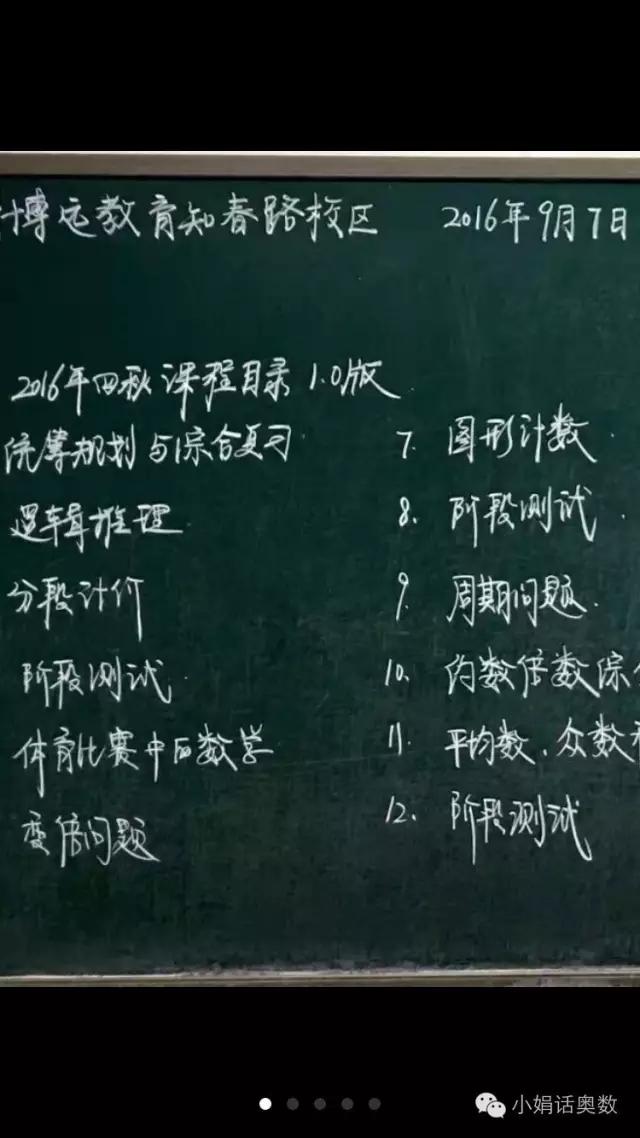 博远教育知春路校区 2016年9月7日
2016年四秋课程目录 1.0版
统筹规划与综合复习
逻辑推理
分段计价
阶段测试
体育比赛中的数学
变倍问题
7. 图形计数
8. 阶段测试
9. 周期问题
10. 约数倍数综
11. 平均数、众数
12. 阶段测试
小娟话奥数